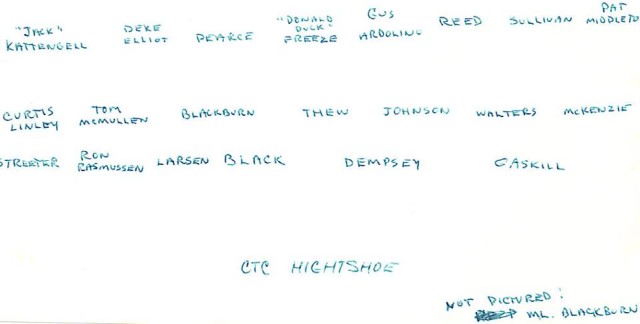 "JACK" KATTENGELL DEKE ELLIOT PEARCE "DONALD DUCK" FREEZE GUS ARDOLINO REED SULLIVAN PAT MIDDLETO
CURTIS LINLEY TOM MCMULLEN BLACKBURN THEW JOHNSON WALTERS MCKENZIE
STREETER RON RASMUSSEN LARSEN BLACK DEMPSEY GASKILL
CTC HIGHTSHOE
NOT PICTURED:
ML. BLACKBURN